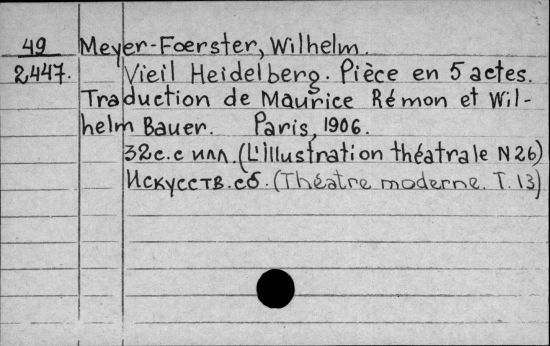 49 Meyer-Foerster, Wilhelm.
2447. Vieil Heidelberg. Pièce en 5 actes.
Traduction de Maurice Rémon et Wil-
helm Bauer. Paris, 1906.
32с. с илл. (L'Illustration théatrale N 26)
Искусств. сб. (Théatre moderne. T. 13)